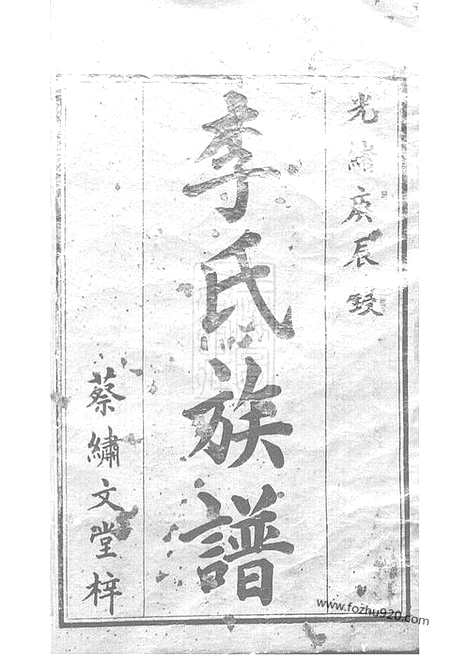 光緒庚辰鋟
李氏族譜
蔡繡文堂梓
www.fozhu920.com